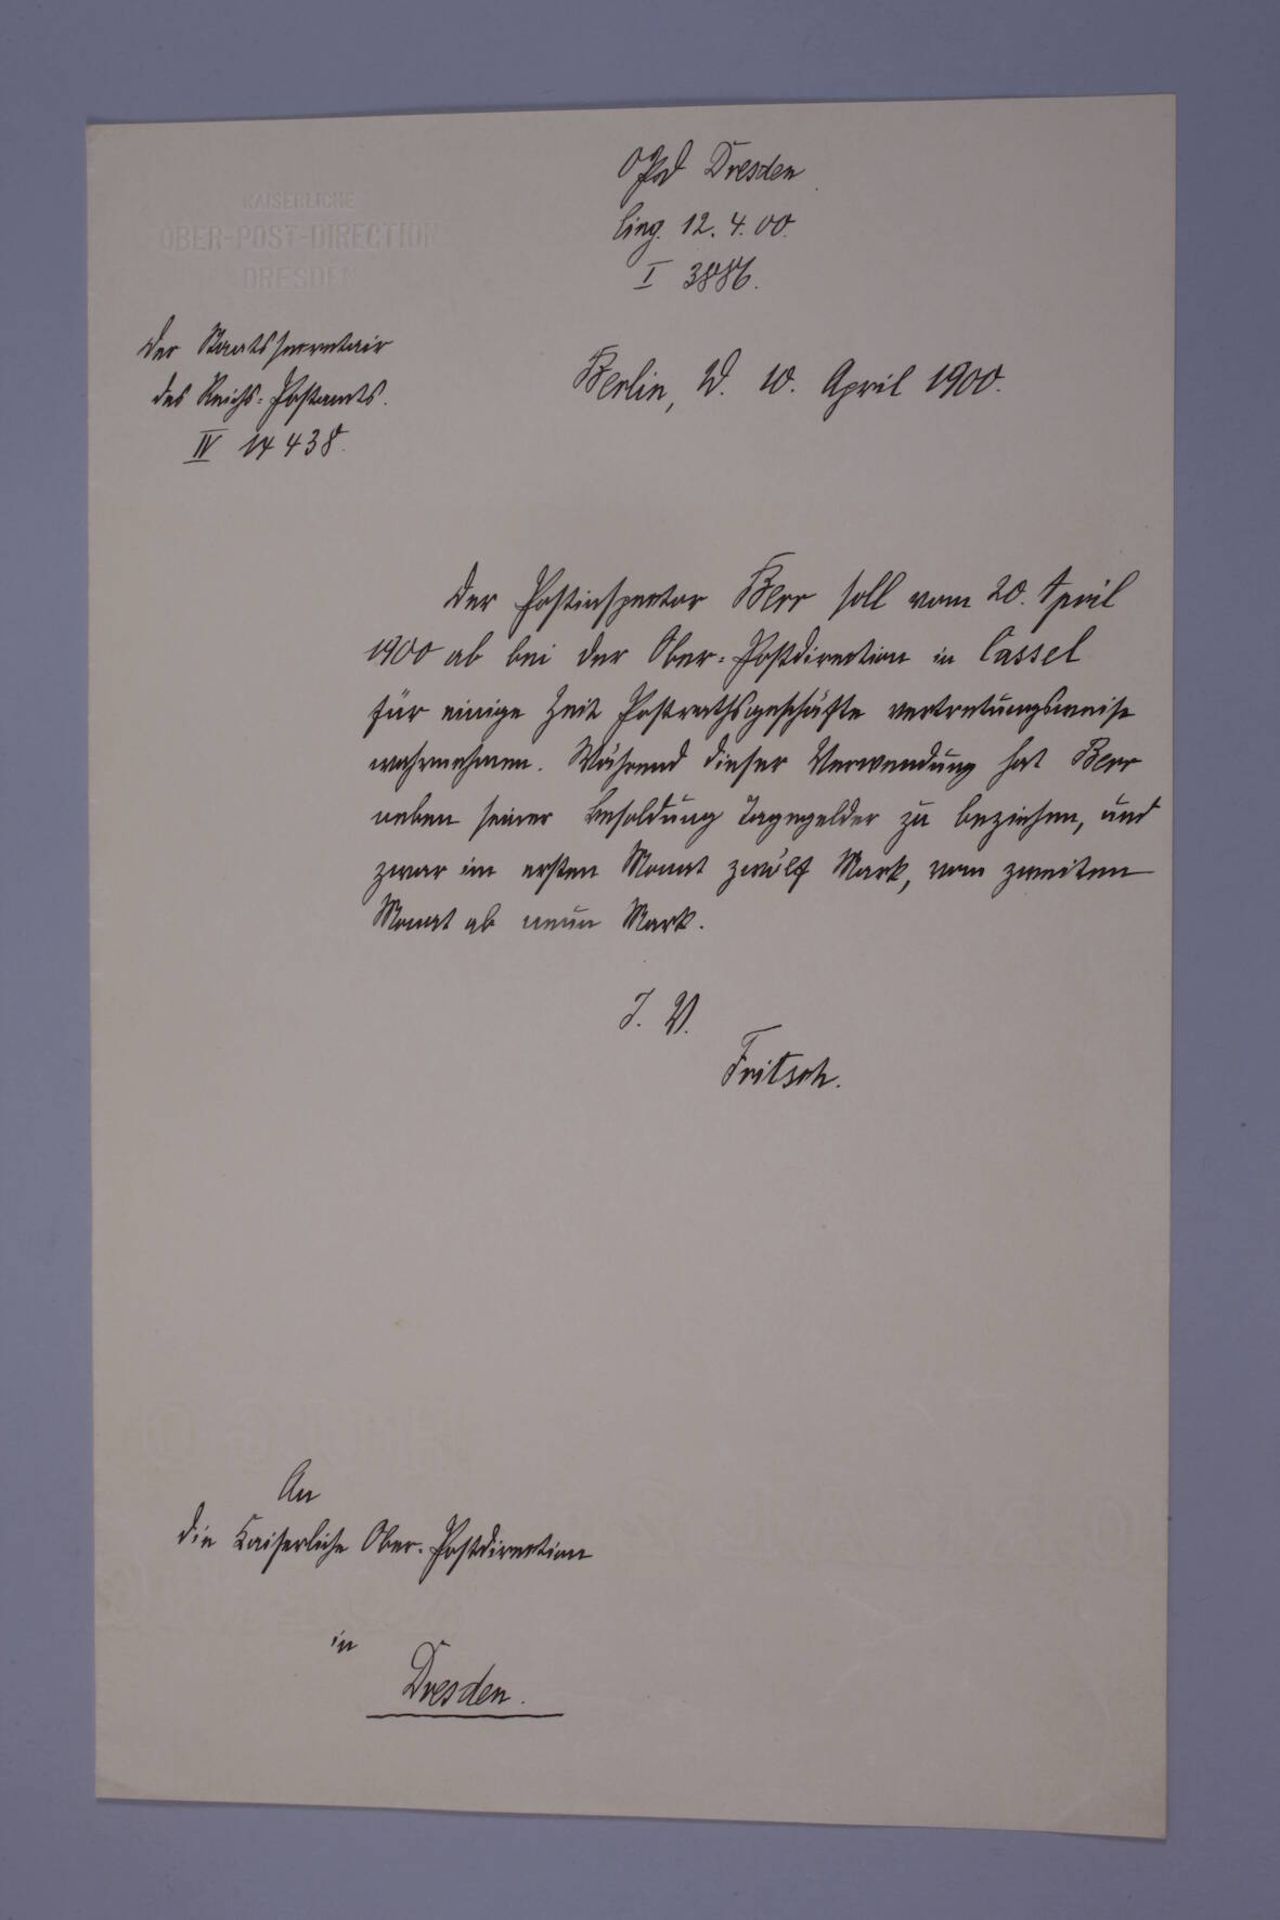 OPD Dresden
Eing. 12. 4. 00.
I 3886.
KAISERLICHE
OBER-POST-DIRECTION
DRESDEN
Der Staatssecretair
des Reichs-Postamts.
IV 14 438.
Berlin, W. 10. April 1900.
Der Postinspector Berr soll vom 20. April
1900 ab bei der Ober-Postdirection in Cassel
für einige Zeit Postrathsgeschäfte vertretungsweise
wahrnehmen. Während dieser Verwendung hat Berr
neben seiner Besoldung Tagegelder zu beziehen, und
zwar im ersten Monat zwölf Mark, vom zweiten
Monat ab neun Mark.
I. V.
Fritsch.
An
die Kaiserliche Ober-Postdirection
in
Dresden.